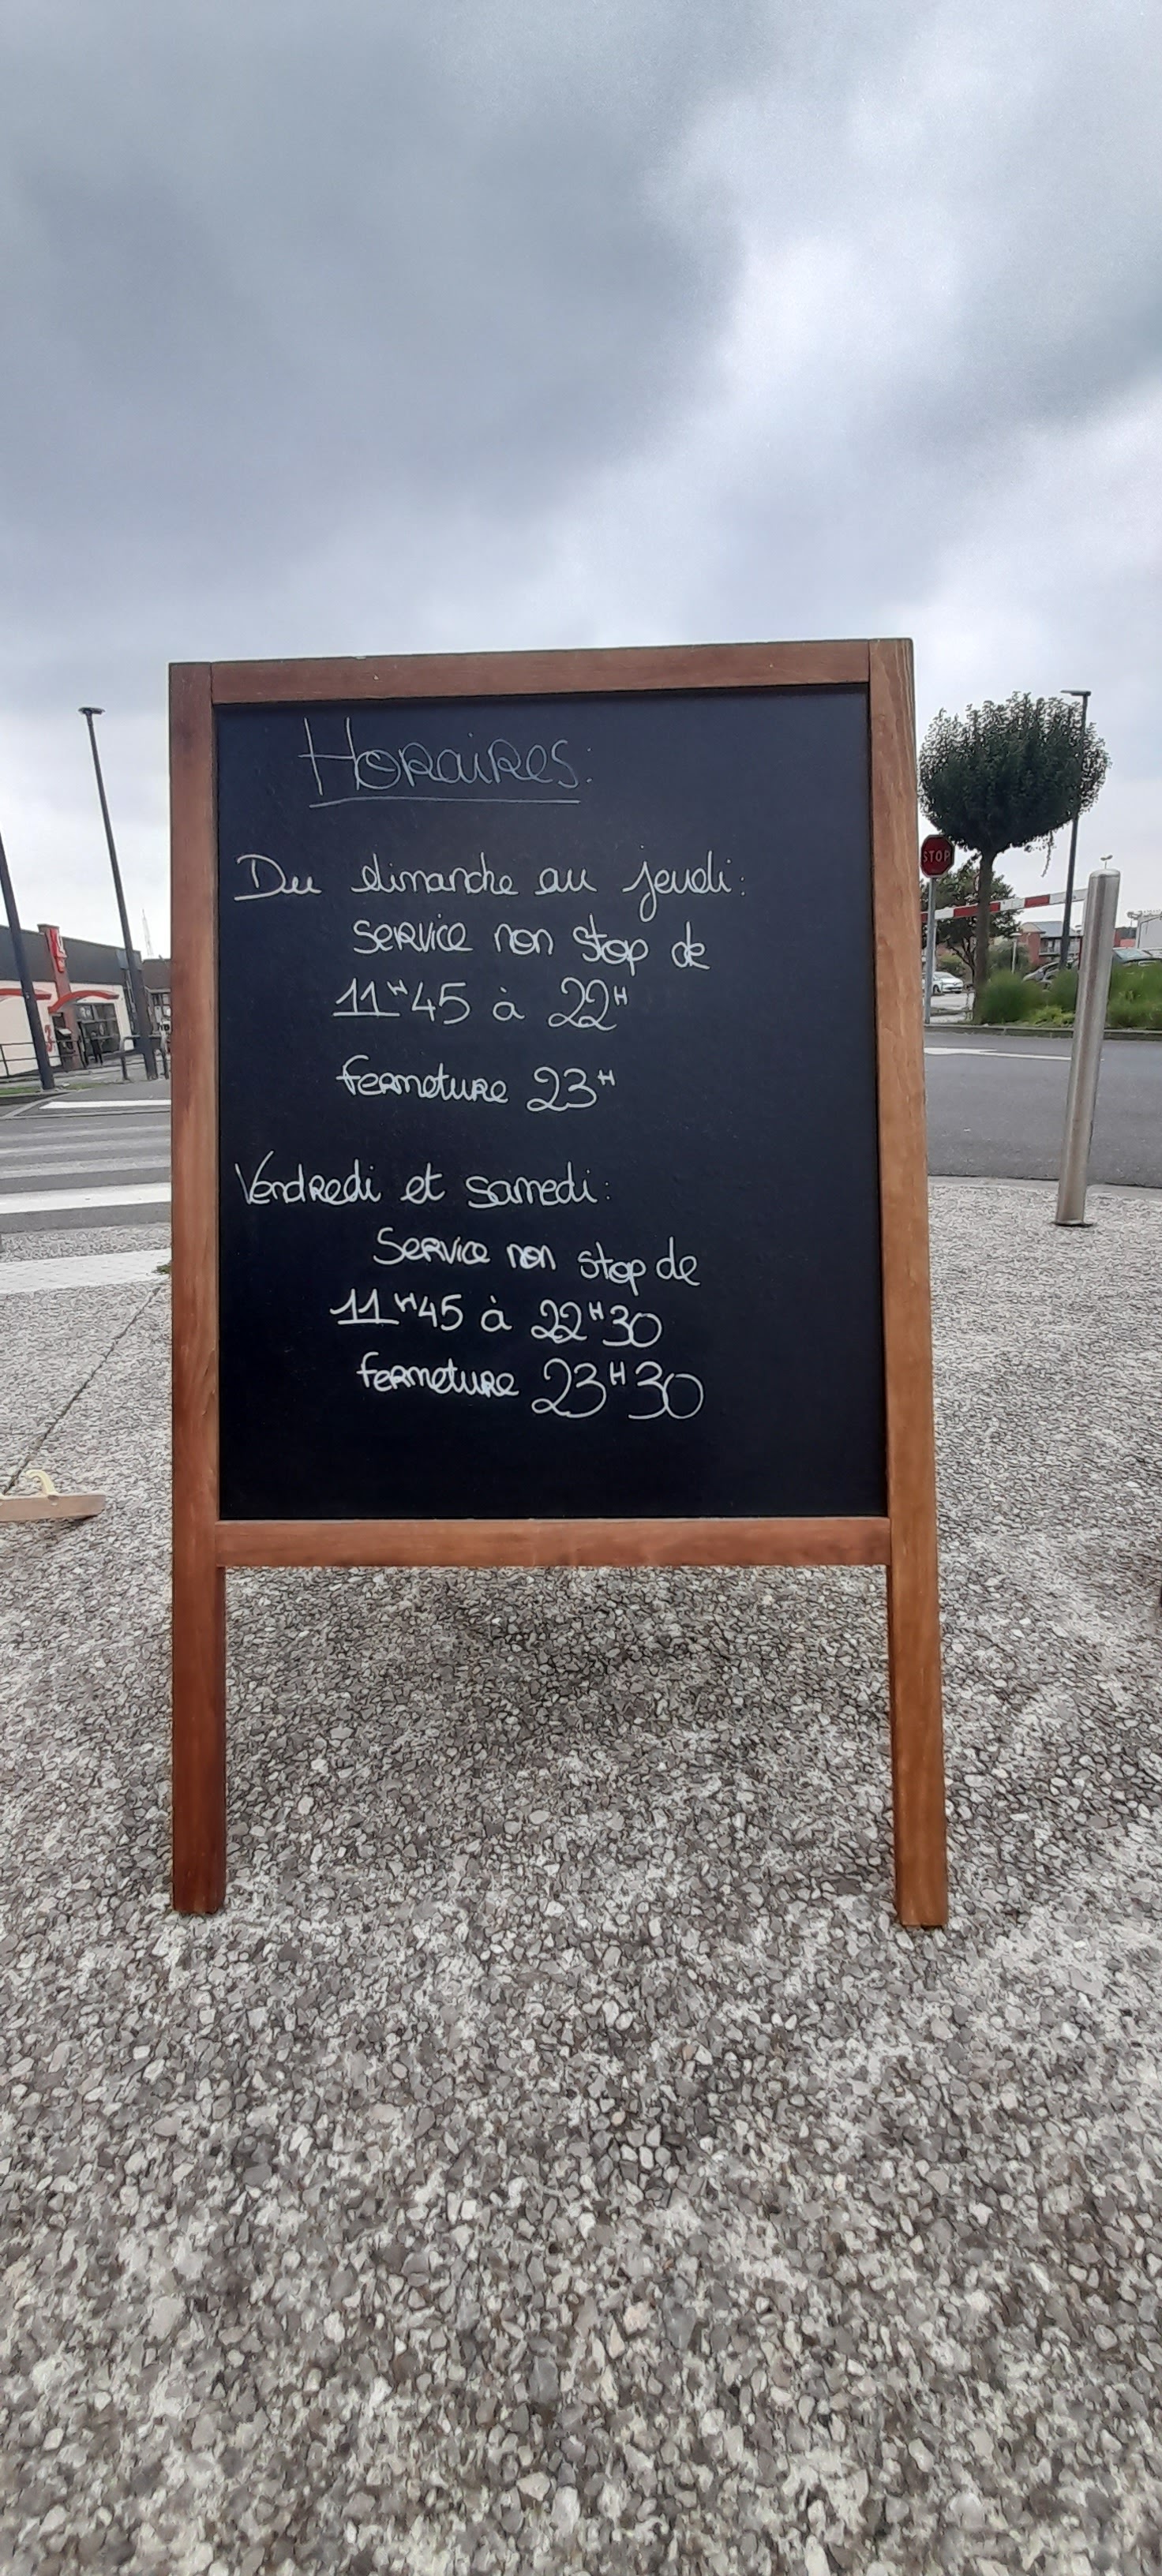 Horaires:
Du dimanche au jeudi:
service non stop de
11H45 à 22H
fermeture 23H
Vendredi et samedi:
Service non stop de
11H45 à 22H30
fermeture 23H30
STOP